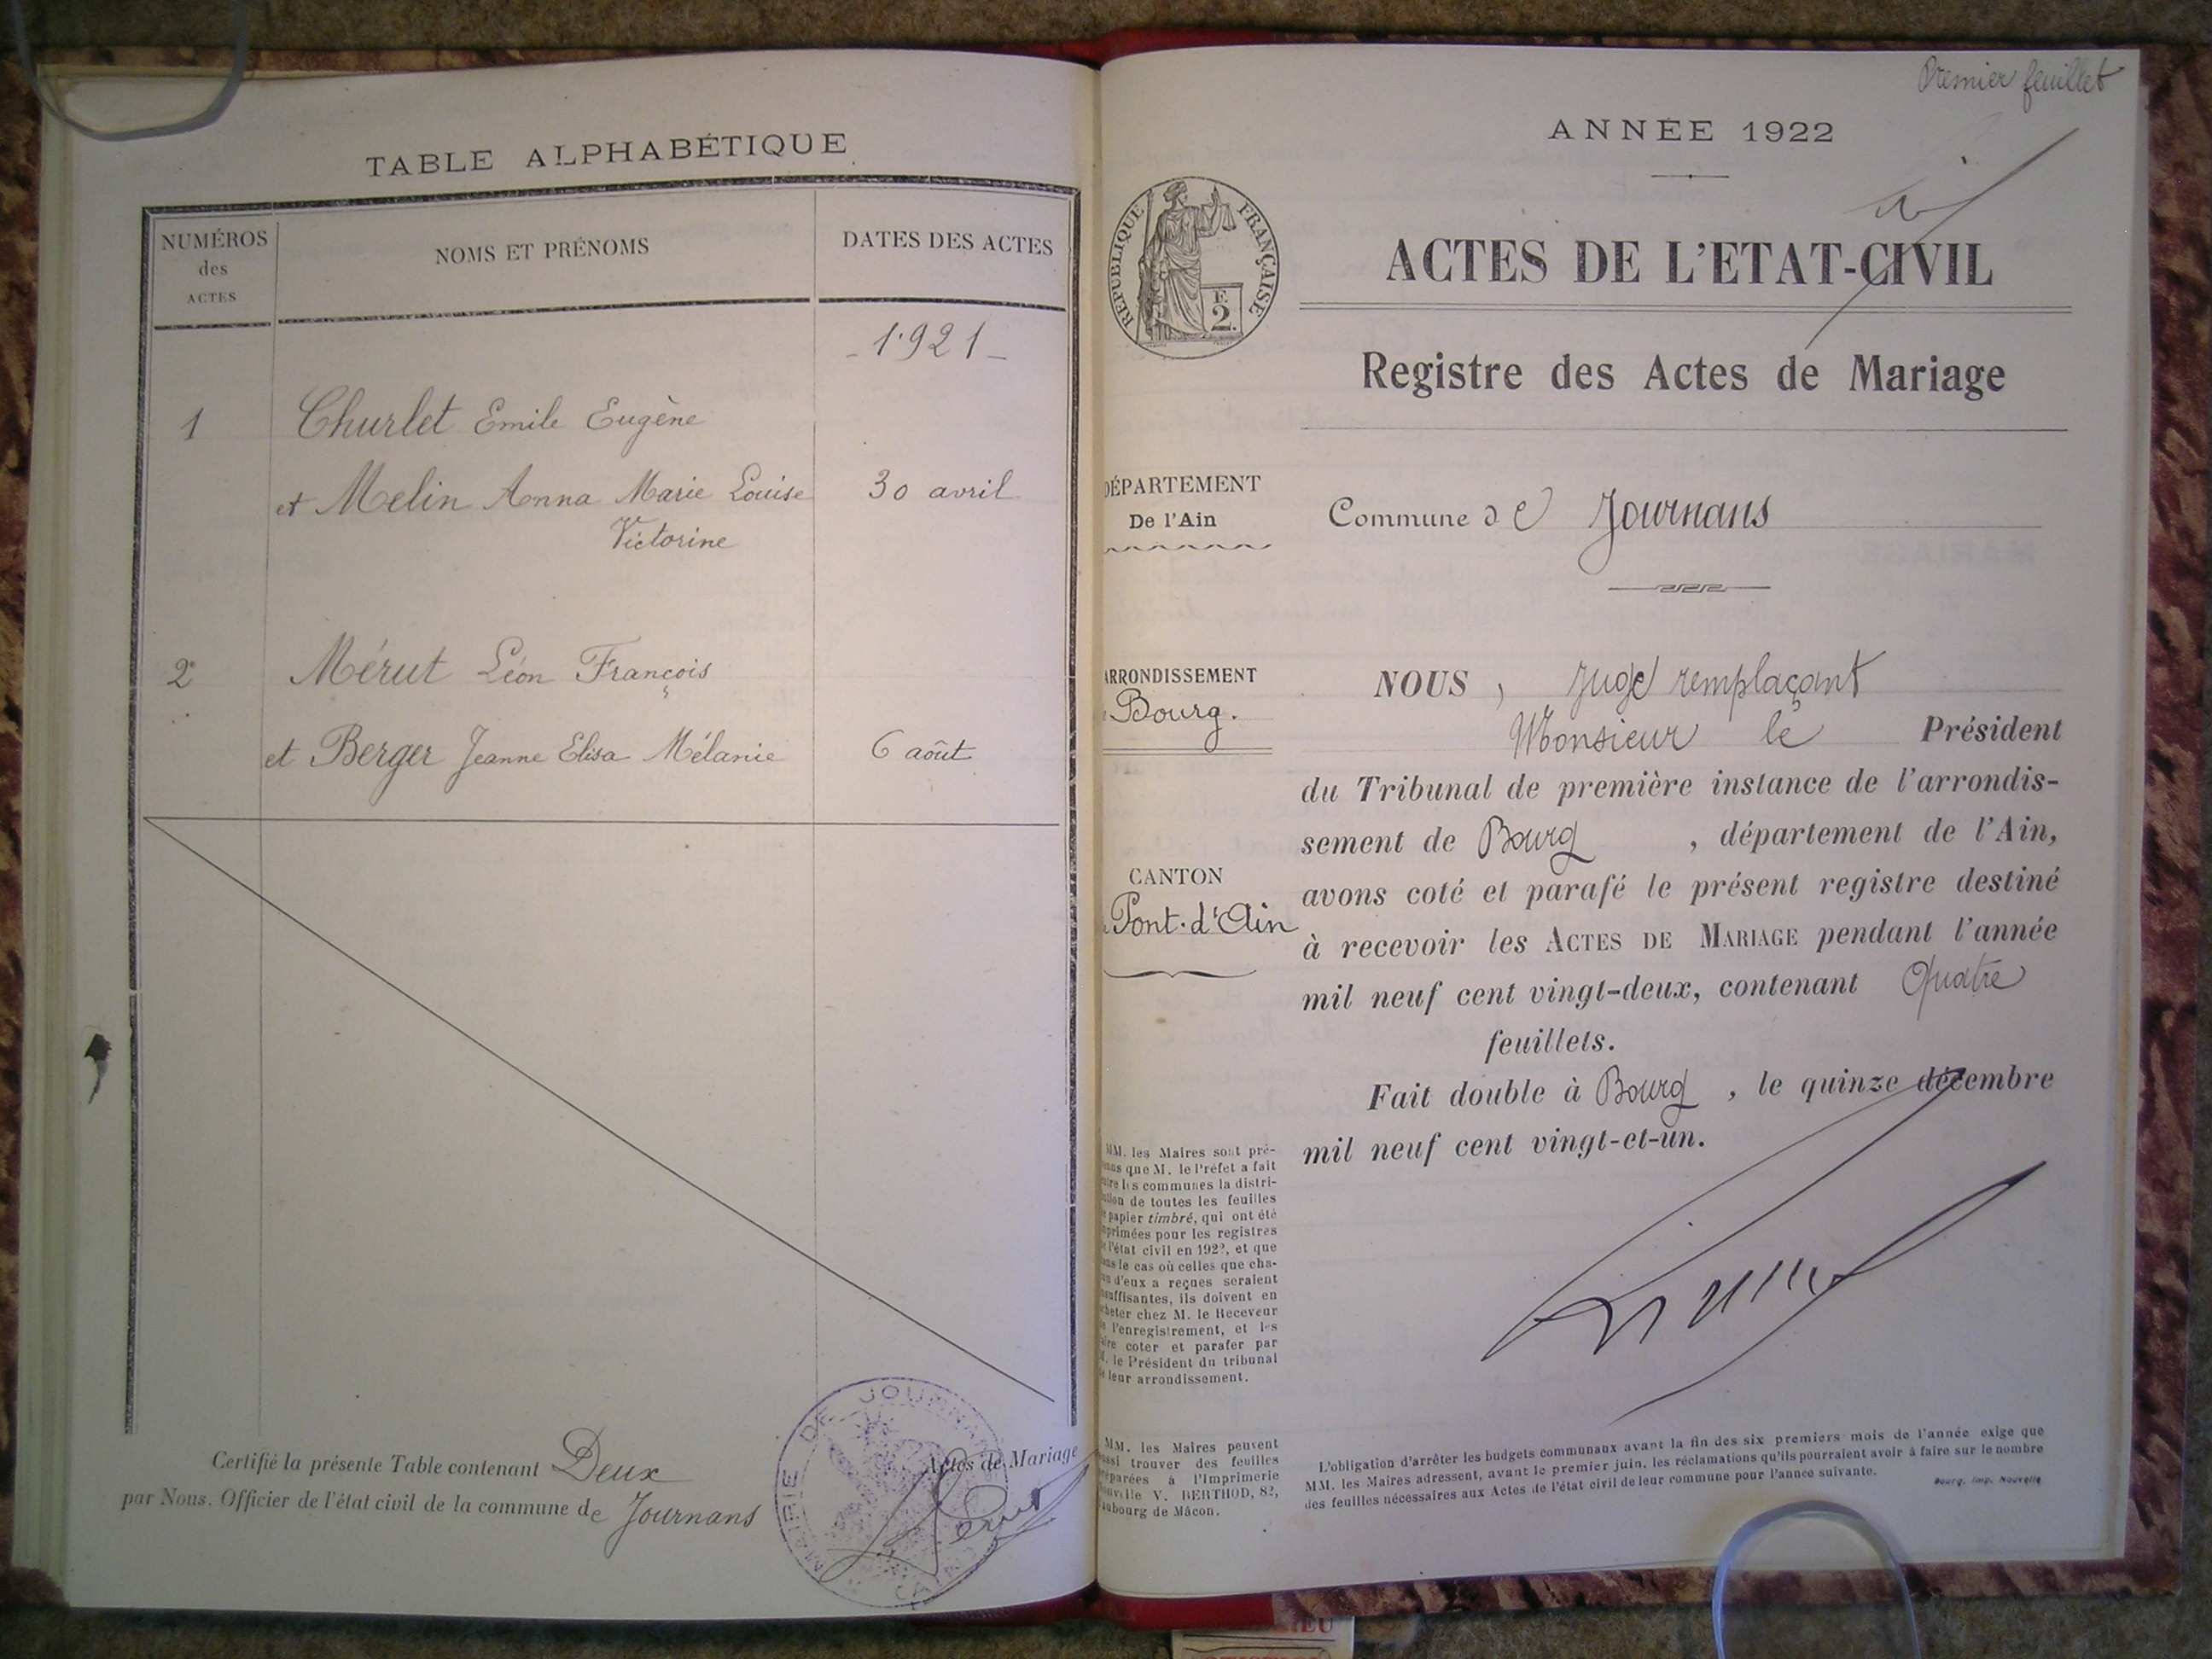 TABLE ALPHABÉTIQUE
NUMÉROS
des
ACTES
NOMS ET PRÉNOMS
DATES DES ACTES
- 1921 -
1
Churlet Emile Eugène
et Melin Anna Marie Louise
Victorine
30 avril
2
Mérut Léon François
et Berger Jeanne Elisa Mélanie
6 août
Certifié la présente Table contenant Deux Actes de Mariage
par Nous, Officier de l'état civil de la commune de Journans
MAIRIE DE JOURNANS
Premier feuillet
ANNÉE 1922
RÉPUBLIQUE FRANÇAISE
F.
2.
ACTES DE L'ETAT-CIVIL
Registre des Actes de Mariage
DÉPARTEMENT
De l'Ain
Commune de Journans
ARRONDISSEMENT
Bourg.
CANTON
Pont-d'Ain
NOUS, Juge remplaçant
Monsieur le Président
du Tribunal de première instance de l'arrondis-
sement de Bourg, département de l'Ain,
avons coté et parafé le présent registre destiné
à recevoir les ACTES DE MARIAGE pendant l'année
mil neuf cent vingt-deux, contenant Quatre
feuillets.
Fait double à Bourg, le quinze décembre
mil neuf cent vingt-et-un.
MM. les Maires sont pré-
que M. le Préfet a fait
les communes la distri-
de toutes les feuilles
papier timbré, qui ont été
pour les registres
l'état civil en 1922, et que
le cas où celles que cha-
d'eux a reçues seraient
ils doivent en
chez M. le Receveur
l'enregistrement, et les
coter et parafer par
le Président du tribunal
leur arrondissement.
MM. les Maires peuvent
trouver des feuilles
à l'Imprimerie
V. BERTHOD, 82,
de Mâcon.
L'obligation d'arrêter les budgets communaux avant la fin des six premiers mois de l'année exige que
MM. les Maires adressent, avant le premier juin, les réclamations qu'ils pourraient avoir à faire sur le nombre
des feuilles nécessaires aux Actes de l'état civil de leur commune pour l'année suivante.
Bourg, Imp. Nouvelle